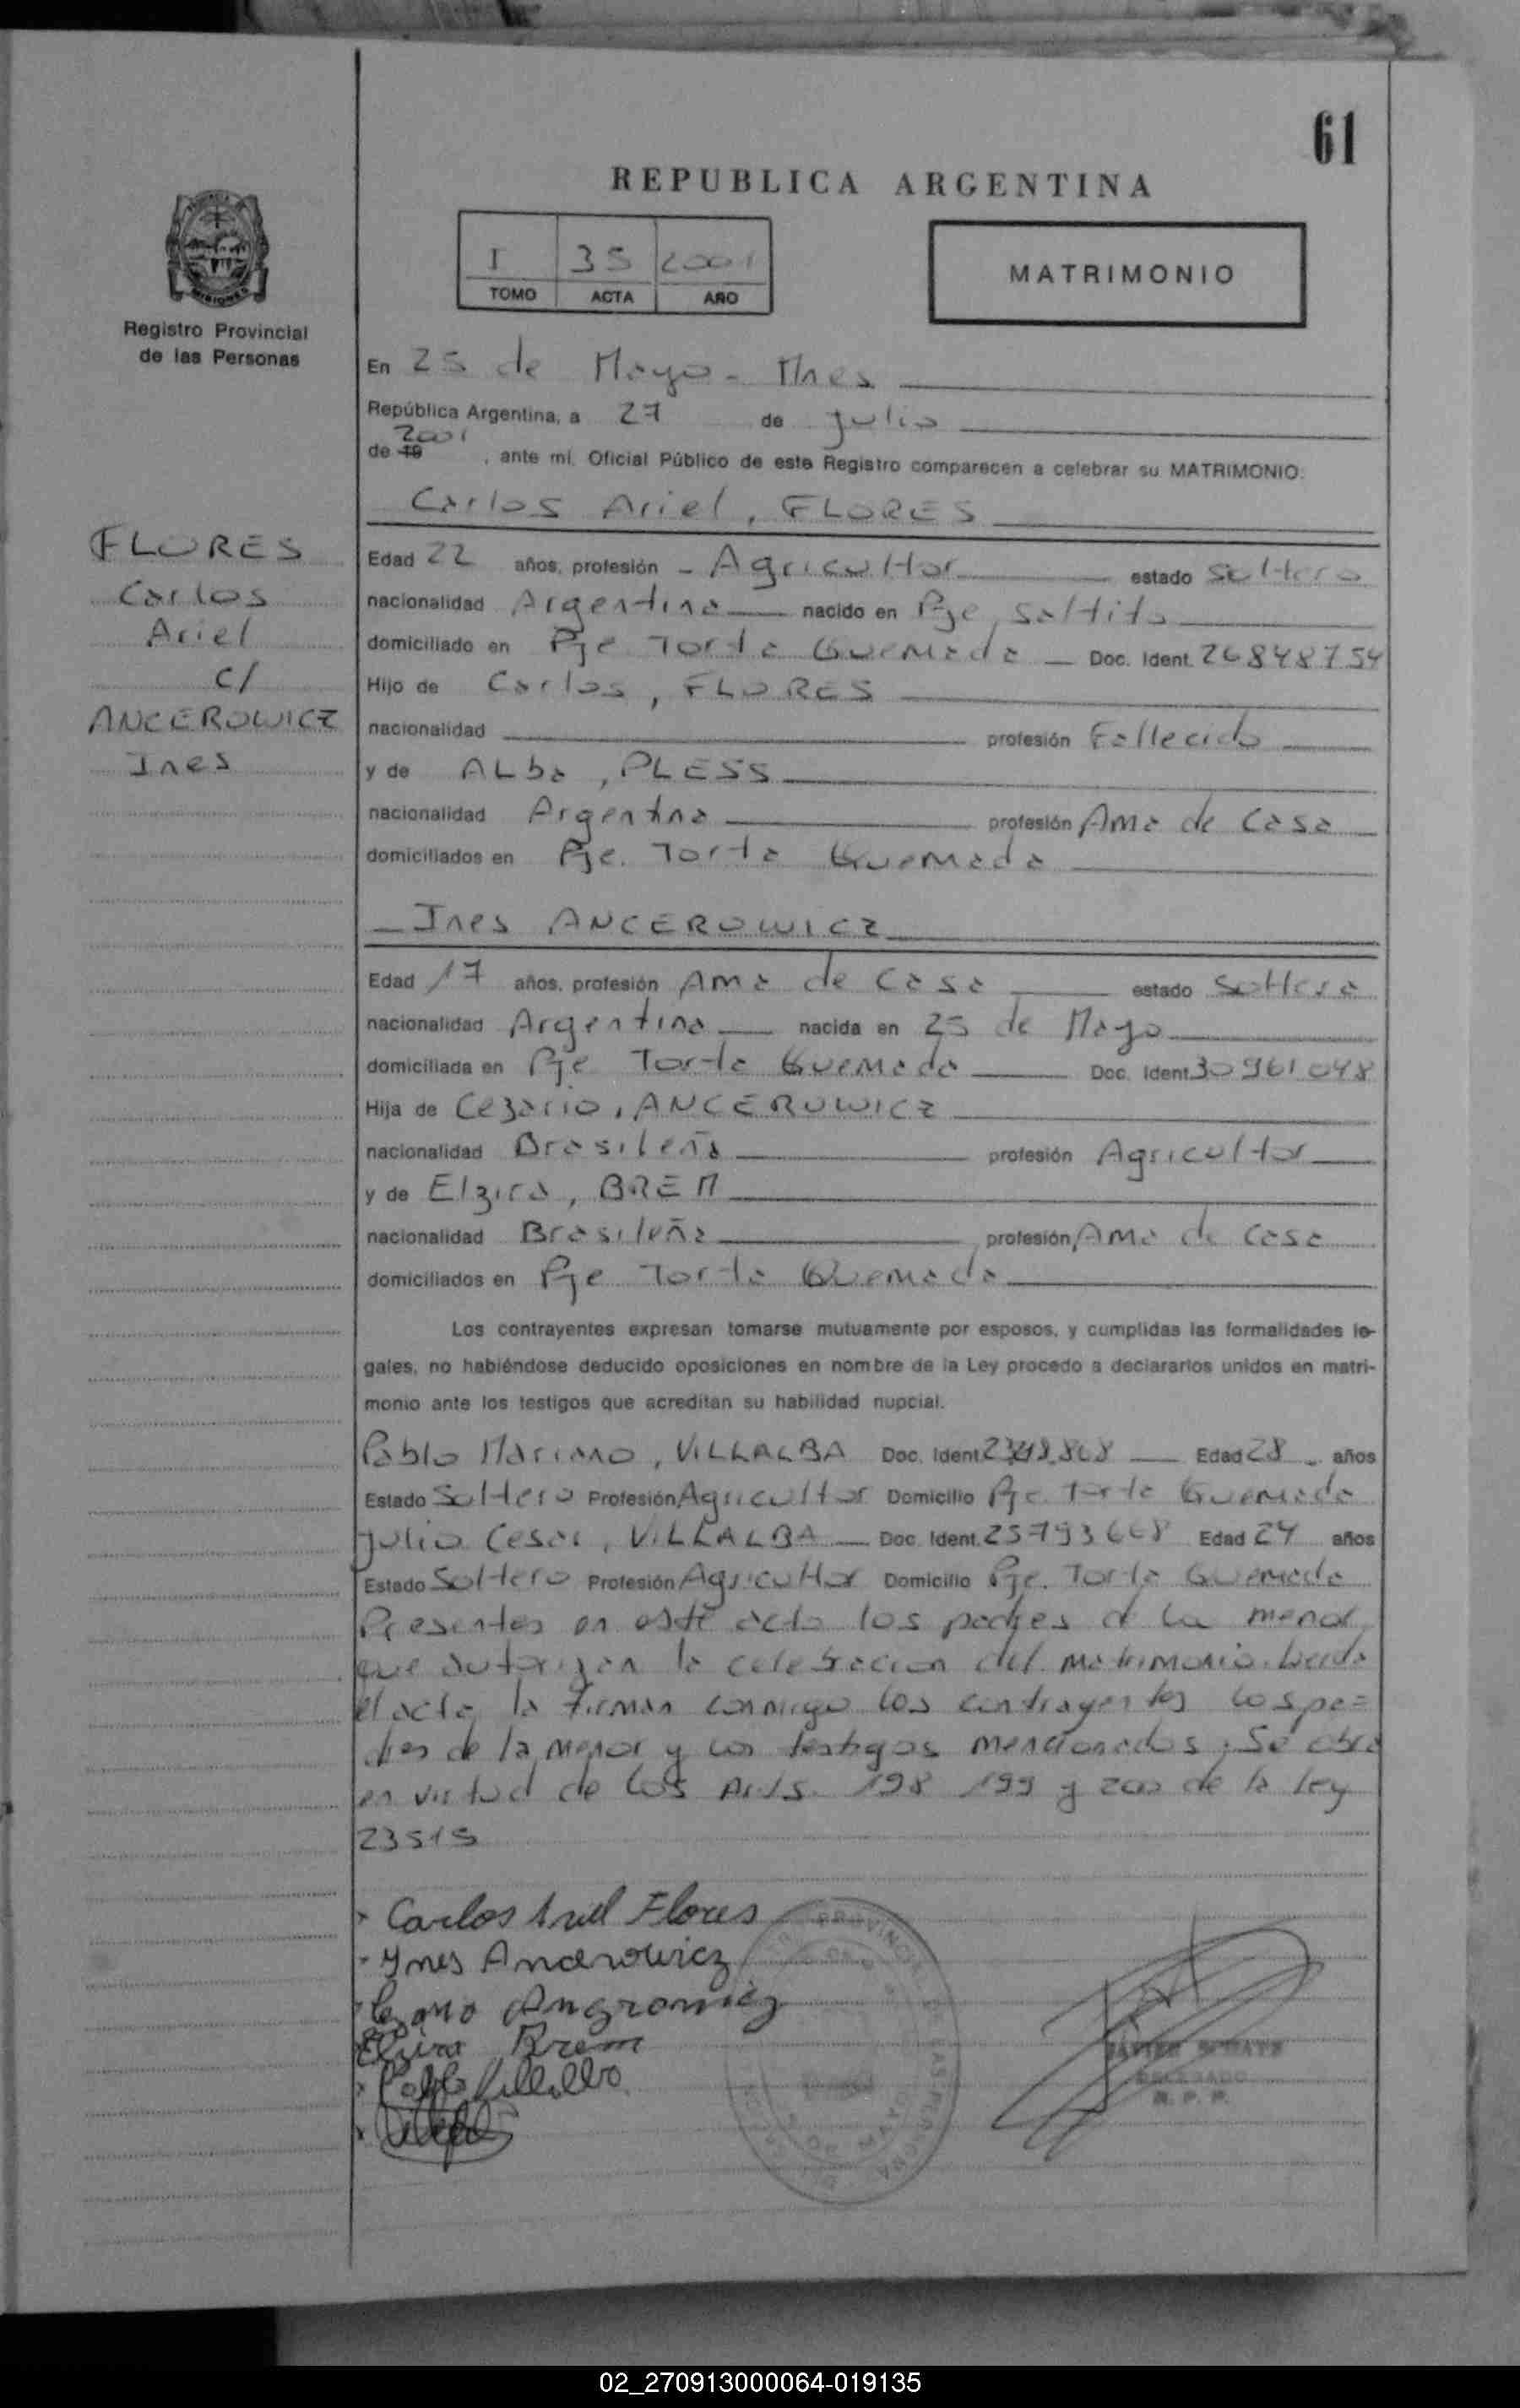 61
REPUBLICA ARGENTINA
I 35 2001
TOMO ACTA AÑO
MATRIMONIO
Registro Provincial
de las Personas
En 25 de Mayo - Mnes
República Argentina, a 27 de julio
2001
de 19 , ante mí, Oficial Público de este Registro comparecen a celebrar su MATRIMONIO:
Carlos Ariel, FLORES
FLORES
Carlos
Ariel
c/
ANCEROWICZ
Ines
Edad 22 años, profesión - Agricultor estado Soltero
nacionalidad Argentina nacido en Pje Saltito
domiciliado en Pje Torta Quemada Doc. Ident. 26848754
Hijo de Carlos, FLORES
nacionalidad profesión Fallecido
y de ALba, PLESS
nacionalidad Argentina profesión Ama de Casa
domiciliados en Pje. Torta Quemada
Ines ANCEROWICZ
Edad 17 años, profesión Ama de Casa estado Soltera
nacionalidad Argentina nacida en 25 de Mayo
domiciliada en Pje Torta Quemada Doc. Ident 30961048
Hija de Cezario, ANCEROWICZ
nacionalidad Brasileña profesión Agricultor
y de Elzira, BREM
nacionalidad Brasileña profesión Ama de Casa
domiciliados en Pje Torta Quemada
Los contrayentes expresan tomarse mutuamente por esposos, y cumplidas las formalidades le-
gales, no habiéndose deducido oposiciones en nombre de la Ley procedo a declararlos unidos en matri-
monio ante los testigos que acreditan su habilidad nupcial.
Pablo Mariano, VILLALBA Doc. Ident Edad 28 años
Estado Soltero Profesión Agricultor Domicilio Pje. Torta Quemada
Julio Cesar, VILLALBA Doc. Ident. 25793668 Edad 24 años
Estado Soltero Profesión Agricultor Domicilio Pje. Torta Quemada
Presentes en este acto los padres de la menor
que autorizan la celebracion del matrimonio. Leida
el acta la firman conmigo los contrayentes los pa=
dres de la menor y los testigos mencionados. Se obra
en virtud de los Arts. 198 199 y 200 de la ley
23515
Carlos Ariel Flores
Ynes Ancerowicz
Elzira Brem
Pablo Villalba
DELEGADO
R. P. P.
02_270913000064-019135